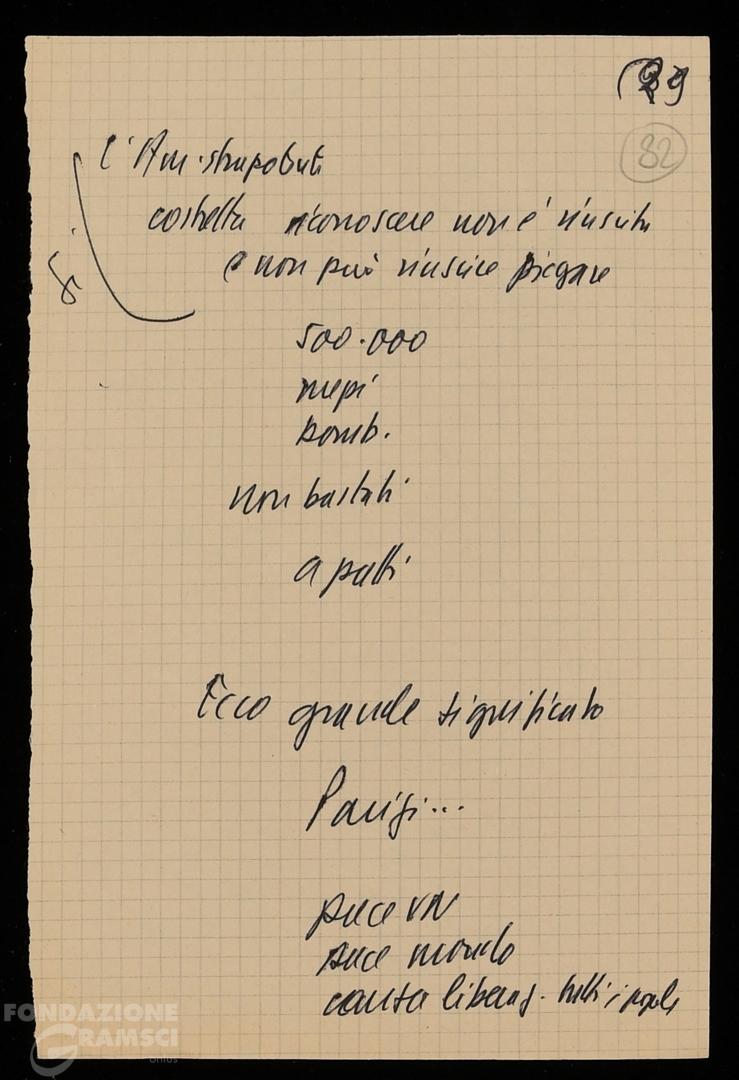 29
82
L'Am. strapotente
Si
costretta riconoscere non è riuscita
e non può riuscire piegare
500.000
mezzi
bomb.
non bastati
a patti
Ecco grande significato
Parigi...
pace VN
pace mondo
causa liberaz. tutti i popoli
FONDAZIONE
GRAMSCI
onlus